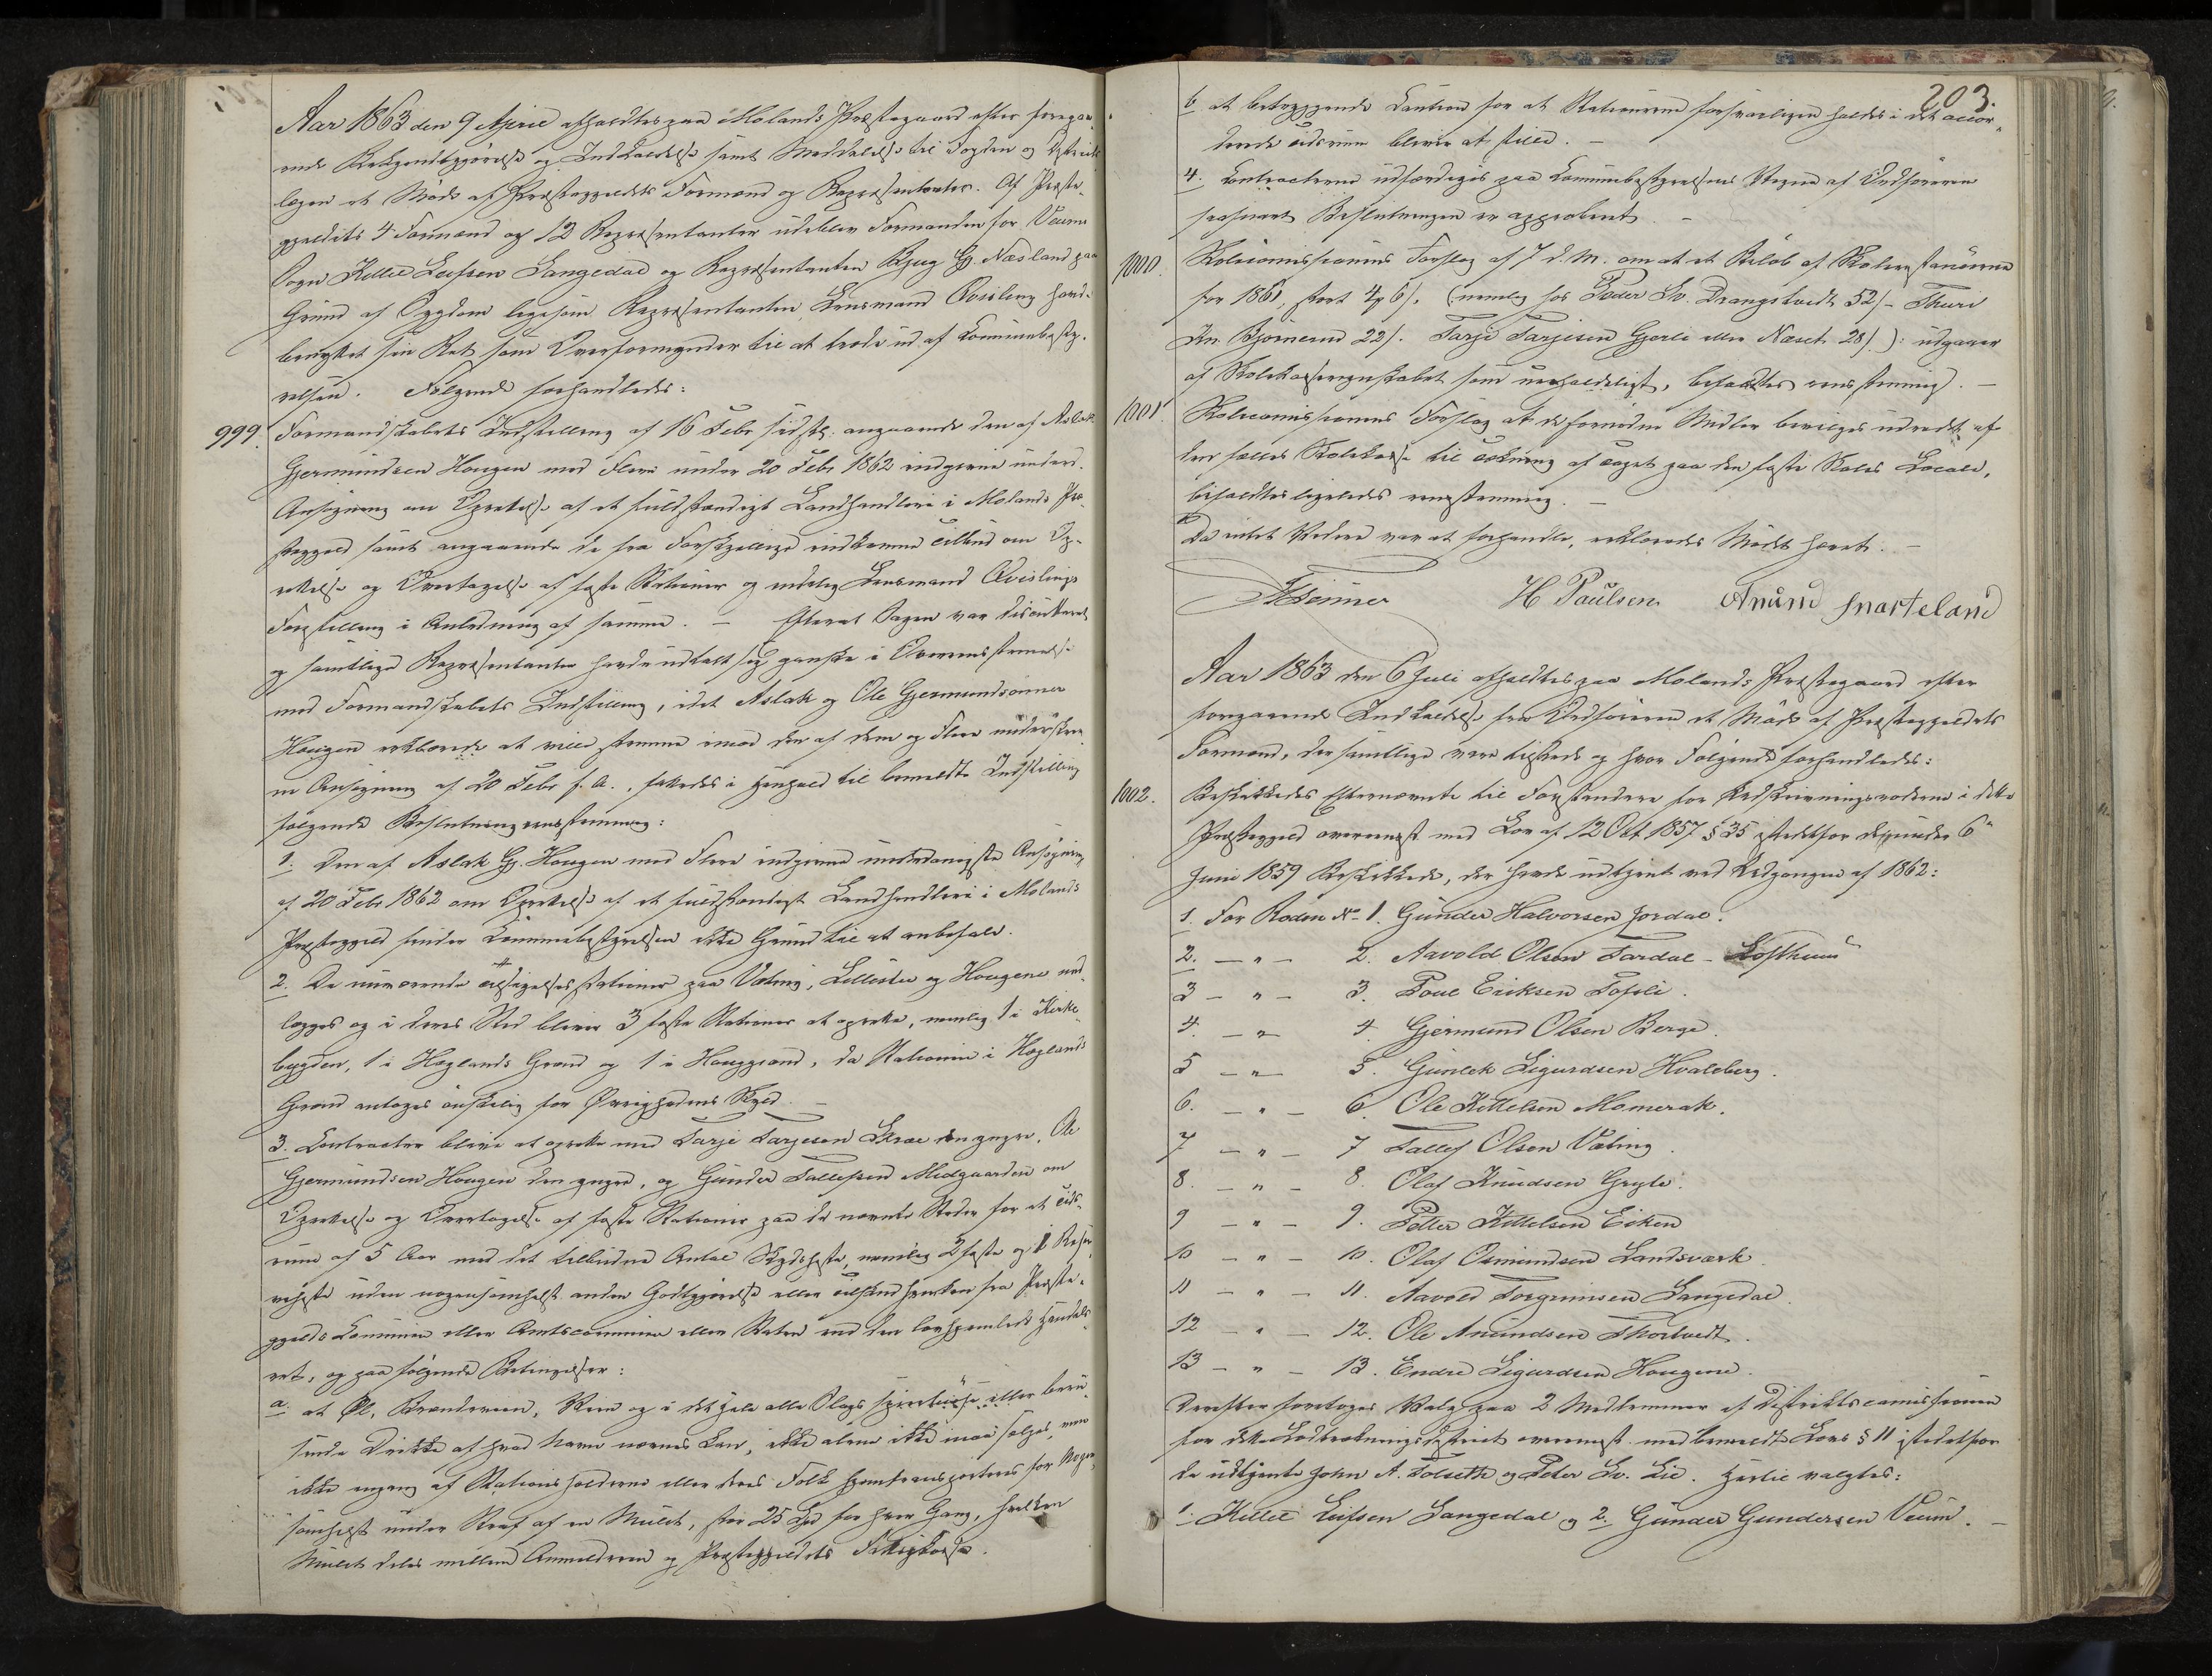 Aar 1863 den 9 April afholdtes paa Molands Præstegaard efter foregaa-
ende Bekjendtgjørelse og Indkaldelse samt Meddelelse til Fogden og Distrikts
lægen et Møde af Præstegjeldets Formænd og Repræsentanter. Af Præste-
gjeldets 4 Formænd og 12 Repræsentanter udeblev Formanden for Veums
Sogn Kittil Leifsen Langedal og Repræsentanten Bjug Gj. Næsland paa
Grund af Sygdom ligesom Repræsentanten Lensmand Qvisling havde
benyttet sin Ret som Overformynder til at træde ud af Communebesty-
relsen. Følgende forhandledes:
999. Formandskabets Indstilling af 16 Febr sidstl. angaaende den af Aslak
Gjermundsen Hougen med Flere under 20 Febr 1862 indgivne underd.
Ansøgning om Oprettelse af et fuldstændigt Landhandleri i Molands Præ-
stegjeld samt angaaende de fra Forskjellige indkomne Tilbud om Op-
rettelse og Overtagelse af faste Stationer og endelig Lensmand Qvislings
Forestilling i Anledning af samme. — Efterat Sagen var discuteret
og samtlige Repræsentanter havde udtalt sig ganske i Overensstemmelse
med Formandskabets Indstilling, idet Aslak og Ole Gjermundsønner
Hougen erklærede at ville stemme imod den af dem og Flere underskrev-
ne Ansøgning af 20 Febr f. A., fattedes i Henhold til bemeldte Indstilling
følgende Beslutning eenstemmig:
1. Den af Aslak Gj. Hougen med Flere indgivne underdanigste Ansøgning
af 20 Febr 1862 om Oprettelse af et fuldstændigt Landhandleri i Molands
Præstegjeld finder Communebestyrelsen ikke Grund til at anbefale.
2. De nuværende Tilsigelsesstationer paa Væting, Lillestu og Hougene ned-
lægges og i deres Sted bliver 3 faste Stationer at oprette, nemlig 1 i Kirke-
bygden, 1 i Høglands Grend og 1 i Houggrend, da Stationen i Høglands
Grend antages ønskelig for Øvrighedens Skyld. —
3. Contracter bliver at oprette med Tarje Tarjesen Skree den yngre, Ole
Gjermundsen Hougen den yngre, og Gunder Tallefsen Midgaarden om
Oprettelse og Overtagelse af faste Stationer paa de nævnte Steder for et Tids-
rum af 5 Aar med det tilbudne Antal Skydsheste, nemlig 2 faste og 1 Reser-
vehest uden nogensomhelst anden Godtgjørelse eller Tilskud hverken fra Præste-
gjelds Commune eller Amtscommune eller Staten end den lovhjemlede Handels-
ret, og paa følgende Betingelser:
a. at Øl, Brændeviin, Viin og i det Hele alle Slags spirituøse eller beru-
sende Drikke af hvad Navn nævnes kan, ikke alene ikke maa sælges, men
ikke engang af Stationsholderne eller deres Folk hjemtransporteres for Nogen-
somhelst under Straf af en Mulct, stor 25 Spd for hver Gang, hvilken
Mulct deles mellem Anmelderen og Præstegjeldets Fattigkasse.
203.
b. at betryggende Caution for at Stationerne forsvarligen holdes i det accor-
derede Tidsrum bliver at stille. —
4. Contracterne udfærdiges paa Communebestyrelsens Vegne af Ordføreren
saasnart Beslutningen er approberet. —
1000. Skolecommissionens Forslag af 7 d. M. om at et Beløb af Skolerestancerne
for 1861, stort 4 6/. (nemlig hos Peder Sv. Drangstvedt 52/- Thuri
Kn. Bjørnerud 22/. Tarje Tarjesen Gjerli eller Næset 28/): udgaaer
af Skolekasseregnskabet som uerholdeligt, bifaldtes eenstemmig. —
1001. Skolecommissionens Forslag at de fornødne Midler bevilges udredet af
den fælles Skolekasse til Tækning af Taget paa den faste Skoles Locale,
bifaldtes ligeledes eenstemmig. —
Da intet Videre var at forhandle, erklæredes Mødet hævet. —
H Paulsen Anund Snarteland
Aar 1863 den 6 Juli afholdtes paa Molands Præstegaard efter
foregaaende Indkaldelse fra Ordføreren et Møde af Præstegjeldets
Formænd, der samtlige vare tilstede og hvor Følgende forhandledes:
1002. Beskikkedes Efternævnte til Forstandere for Udskrivningsroderne i dette
Præstegjeld overeenst. med Lov af 12 Oct 1857 § 35 istedetfor de under 6te
Juni 1859 Beskikkede, der havde udtjent ved Udgangen af 1862:
1. For Roden No 1. Gunder Halvorsen Jordal.
2. — " — 2. Aavold Olsen Tardal - Lofthuus
3 — " — 3. Poul Eriksen Tofsli.
4. — " — 4. Gjermund Olsen Berge.
5 — " — 5. Gunlek Sigurdsen Hvaleberg.
6. — " — 6. Ole Kittelsen Momerak.
7 — " — 7 Tallef Olsen Væting.
8. — " — 8. Olaf Knudsen Gryte.
9 — " — 9. Petter Kittelsen Eiken
10 — " — 10. Olaf Osmundsen Landsværk.
11 — " — 11. Aavold Torgrimsen Langedal.
12 — " — 12. Ole Anundsen Thortvedt.
13 — " — 13. Endre Sigurdsen Hougene.
Derefter foretoges Valg paa 2 Medlemmer af Distriktscommissionen
for dette Lodtrækningsdistrict overeenst. med bemeldte Lovs § 11 istedetfor
de udtjente John A. Folseth og Peter Sv. Lie. Hertil valgtes:
1. Kittil Leifsen Langedal og 2. Gunder Gundersen Veum. —